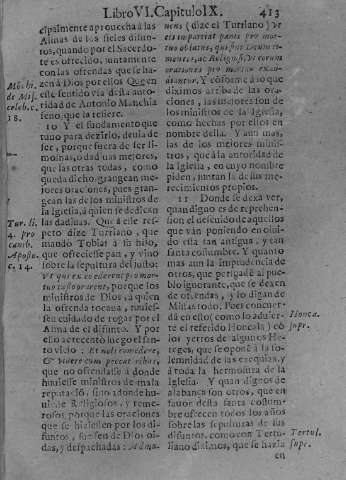 Libro VI. Capitulo IX. 413
cipalmente aprouecha à las
Almas de los fieles difun-
tos, quando por el Sacerdo-
te es ofrecido, juntamente
con las ofrendas que se ha-
zen à Dios por ellos. Que en
este sentido viò esta autho-
ridad de Antonio
seno, que la refiere.
10 Y el fundamento que
tuuo para dezirlo, deuia de
ser, porque fuera de ser li-
mosinas, o dadiuas mejores,
que las otras todas, como
queda dicho, grangean me-
jores oraciones, pues gran-
gean las de los ministros de
la Iglesia, à quien se dedican
las dadiuas. Que à este res-
peto dize Turriano, que
mando Tobias à su hijo,
que ofreciesse pan, y vino
sobre la sepultura del justo:
porque los
ministros de Dios, à quien
la ofrenda tocaua, tuuies-
sen cuidado de rogar por el
Alma de el difunto. Y por
esso acrecentò luego el san-
to viejo: Et noli comedere,
& bibere cum peccatoribus,
que no ofrendasse à donde
huuiesse ministros de mala
reputaciò, sino adonde hu-
uiesse Religiosos, y temero-
sos, porque las oraciones
que se hiziessen por los di-
funtos, fuessen de Dios oi-
das, y despachadas:
nens (dize el Turriano) Ve
eis impartiat panes pro mor-
tuis oblatos, qui sint Deum ti-
mentes, ac Religiosi, Vt eorum
orationes pro mortuis exau-
diantur. Y cõforme à lo que
diximos arriba de las ora-
ciones, las mejores son de
los ministros de la Iglesia,
como hechas por ellos en
nombre della. Y aun mas,
las de los mejores minis-
tros, que à la autoridad de
la Iglesia, en cuyo nombre
piden, juntan la de sus me-
recimientos propios.
11 Donde se dexa ver,
quan digno es de reprehen-
sion el desenfado de aquellos
que van poniendo en oluí-
do esta tan antigua, y tan
santa costumbre. Y quanto
mas aun la impudencia de
otros, que persuadẽ al pue-
blo ignorante, que se dexen
de ofrendas, y lo digan de
Missas todo. Pues concuer-
da en esto (como lo aduier-
te el referido Honcala) cõ
los yerros de algunos He-
reges, que se oponẽ à la so-
lemnidad de las exequias, y
à toda la hermosura de la
Iglesia. Y quan dignos de
alabança son otros, que en
fauor desta santa costum-
bre ofrecen todos los años
sobre las sepulturas de sus
difuntos, como con Tertu-
liano diximos, que se hazia
en
de Mis.
celeb. c.
18.
Tur. li.
4. pro
Aposto.
c. 14.
Honca.
supr.
Tertul.
supr.